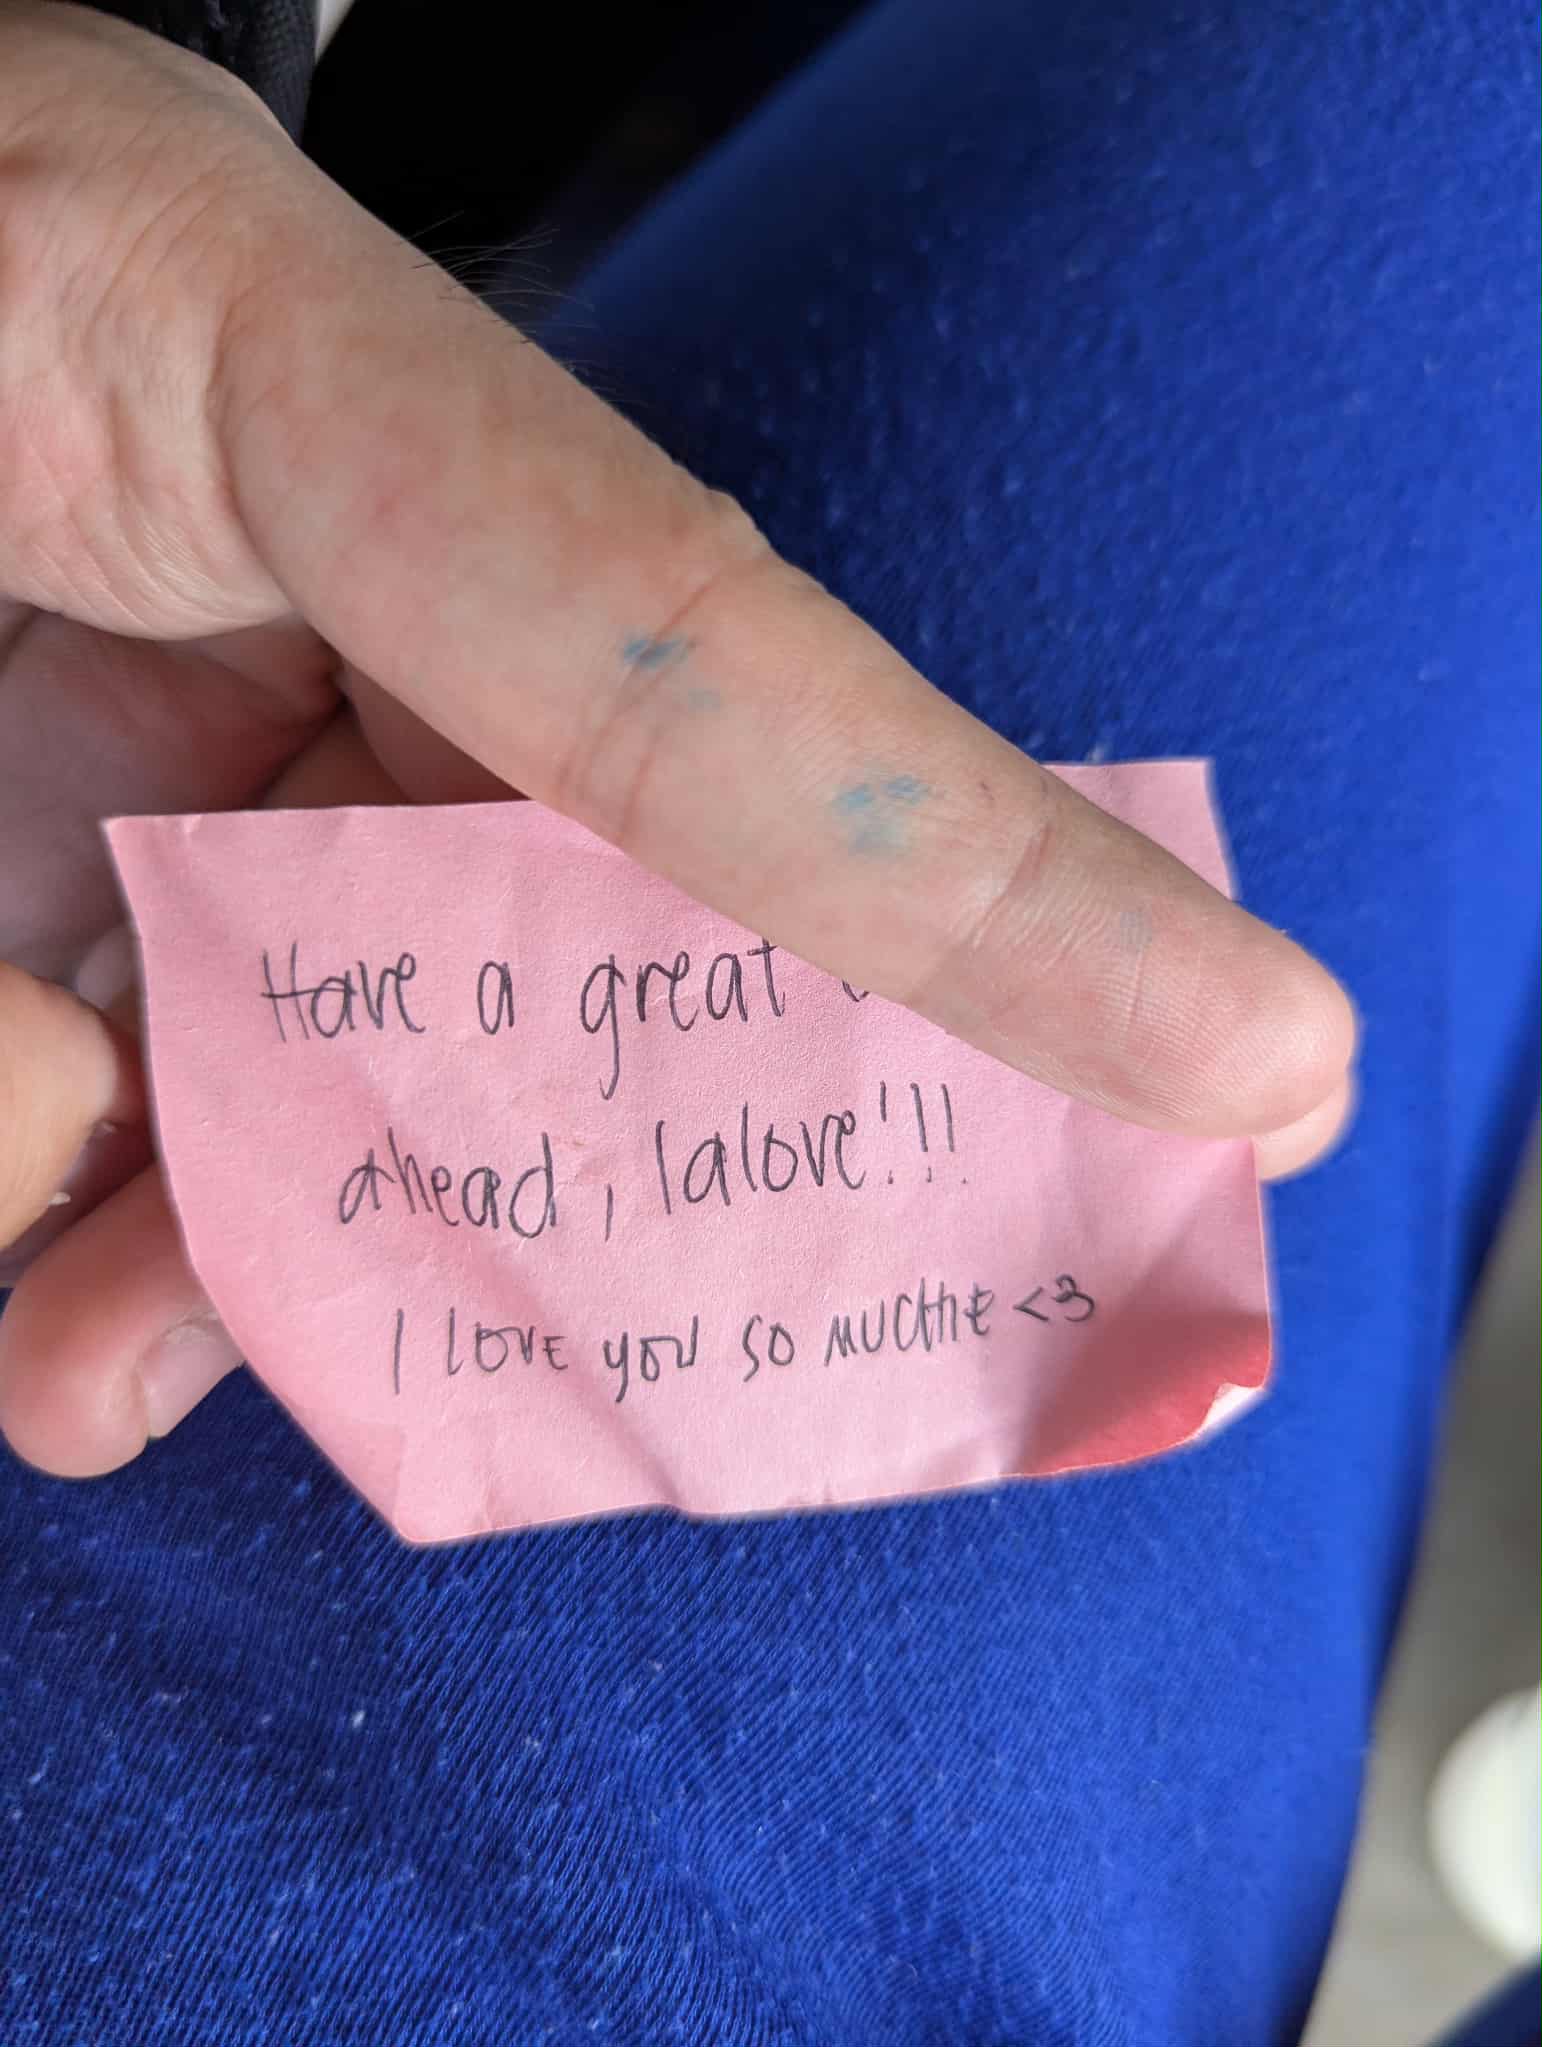 Have a great
ahead, lalove!!!
I love you so muchhe <3